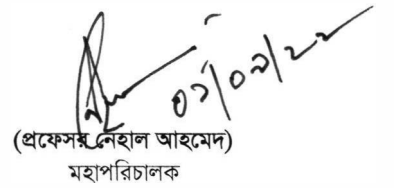 ০১/০৯/২২
(প্রফেসর নেহাল আহমেদ)
মহাপরিচালক